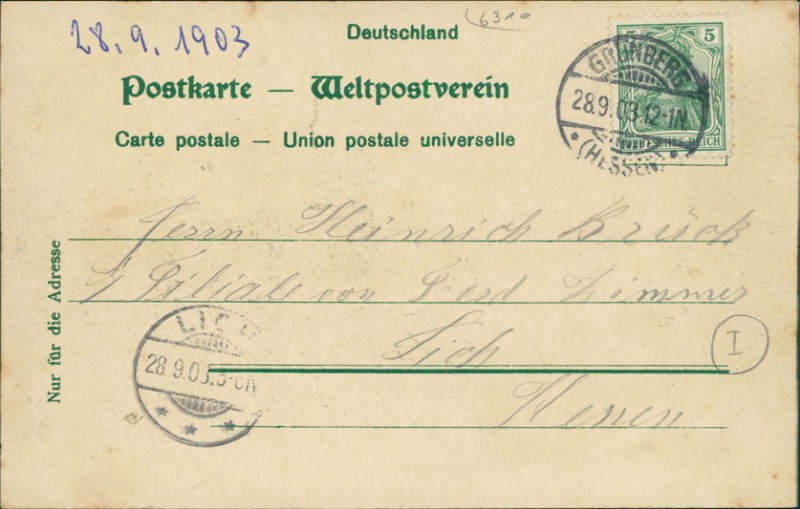 6310
28.9.1903
Deutschland
Postkarte — Weltpostverein
Carte postale — Union postale universelle
5 5
DEUTSCHES REICH
GRÜNBERG
28.9.03.12-1N.
(HESSEN)
Nur für die Adresse
Herrn Heinrich Brück
Filiale von Ferd Zimmer
Lich
Hessen
I
LICH
28.9.03.5-6N